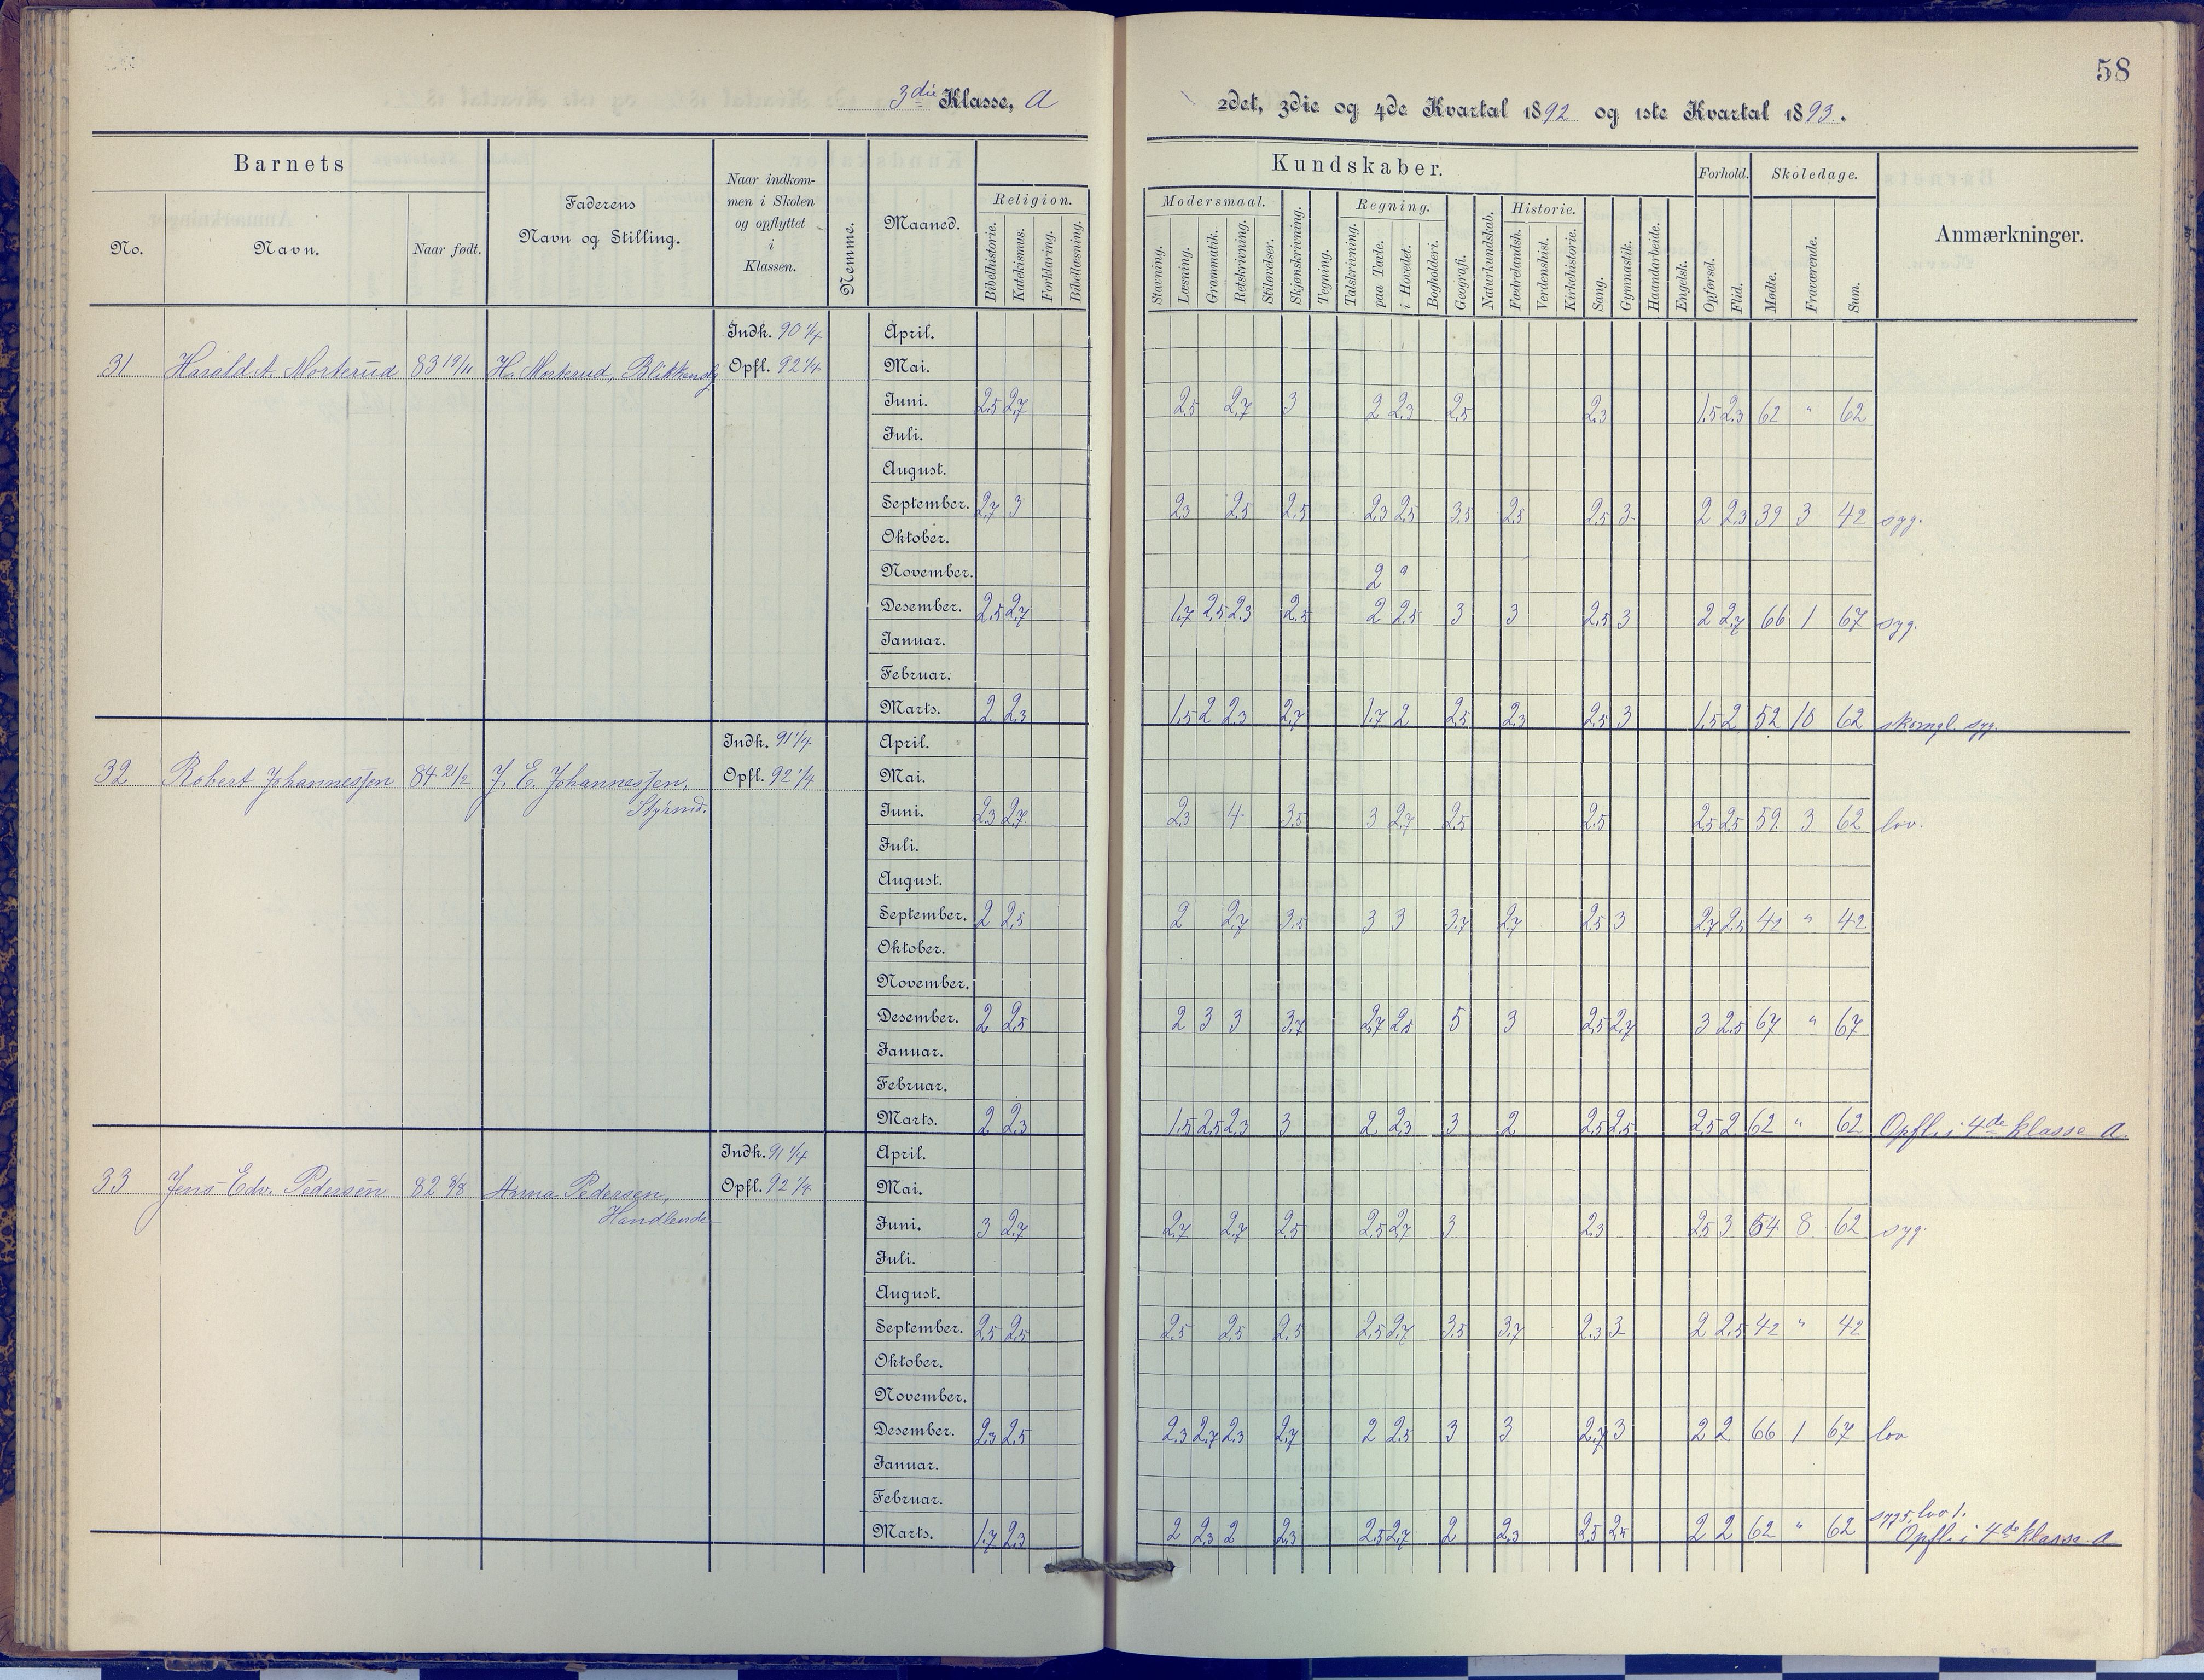 58
3die Klasse, A
2det, 3die og 4de Kvartal 1892 og 1ste Kvartal 1893.
Barnets
No.
Navn.
Naar født.
Faderens
Navn og Stilling.
Naar indkom-
men i Skolen
og opflyttet
i
Klassen.
Nemme.
Maaned.
Religion.
Bibelhistorie.
Katekismus.
Forklaring.
Bibellæsning.
Kundskaber.
Modersmaal.
Stavning.
Læsning.
Grammatik.
Retskrivning.
Stiløvelser.
Skjønskrivning.
Tegning.
Regning.
Talskrivning.
paa Tavle.
i Hovedet.
Bogholderi.
Geografi.
Naturkundskab.
Historie.
Fædrelandsh.
Verdenshist.
Kirkehistorie.
Sang.
Gymnastik.
Haandarbeide.
Engelsk.
Forhold.
Opførsel.
Flid.
Skoledage.
Mødte.
Fraværende.
Sum.
Anmærkninger.
Indk. 90 1/4 April.
31 Harald A. Morterud 83 19/11 H. Morterud, Blikkensl. Opfl. 92 1/4 Mai.
Juni. 2,5 2,7 2,5 2,7 3 2 2,3 2,5 2,3 1,5 2,3 62 " 62
Juli.
August.
September. 2,7 3 2,3 2,5 2,5 2,3 2,5 3,5 2,5 2,5 3 2 2,3 39 3 42 syg.
Oktober.
November. 2 "
Desember. 2,5 2,7 1,7 2,5 2,3 2,5 2 2,5 3 3 2,5 3 2 2,7 66 1 67 syg.
Januar.
Februar.
Marts. 2 2,3 1,5 2 2,3 2,7 1,7 2 2,5 2,3 2,5 3 1,5 2 52 10 62 syg.
Indk. 91 1/4 April.
32 Robert Johannessen 84 21/2 J. E. Johannessen, Opfl. 92 1/4 Mai.
Styrmd.
Juni. 2,3 2,7 2,3 4 3,5 3 2,7 2,5 2,5 2,5 2,5 59 3 62 lov.
Juli.
August.
September. 2 2,5 2 2,7 3,5 3 3 3,7 2,7 2,5 3 2,7 2,5 42 " 42
Oktober.
November.
Desember. 2 2,5 2 3 3 3,7 2,7 2,5 5 3 2,5 2,7 3 2,5 67 " 67
Januar.
Februar.
Marts. 2 2,3 1,5 2,5 2,3 3 2 2,3 3 2 2,5 2,5 2,5 2 62 " 62 Opfl. i 4de klasse A.
Indk. 91 1/4 April.
33 Jens Edv. Pedersen 82 8/8 Anna Pedersen, Opfl. 92 1/4 Mai.
Handlende
Juni. 3 2,7 2,7 2,7 2,5 2,5 2,7 3 2,3 2,5 3 54 8 62 syg.
Juli.
August.
September. 2,5 2,5 2,5 2,5 2,5 2,5 2,7 3,5 3,7 2,3 3 2 2,5 42 " 42
Oktober.
November.
Desember. 2,3 2,5 2,3 2,7 2,3 2,7 2 2,5 3 3 2,7 3 2 2 66 1 67 lov
Januar.
Februar.
syg 5, lov 1.
Marts. 1,7 2,3 2 2,3 2 2,3 2,5 2,7 2 2,3 2,5 2,5 2 2 62 " 62 Opfl. i 4de klasse A